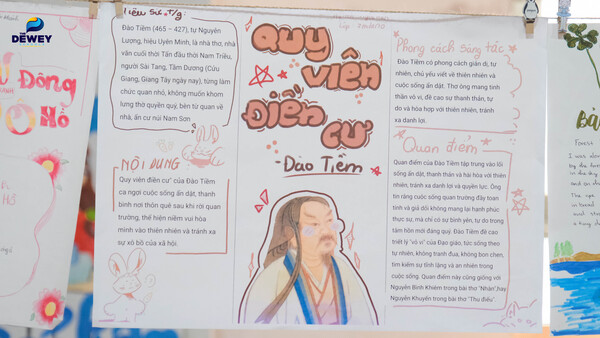 THE DEWEY SCHOOLS
Tiểu Sử t/g:
Đào Tiềm (465 – 427), tự Nguyên
Lượng, hiệu Uyên Minh, là nhà thơ, nhà
văn cuối thời Tấn đầu thời Nam Triều,
người Sài Tang, Tầm Dương (Cửu
Giang, Giang Tây ngày nay), từng làm
chức quan nhỏ, không muốn khom
lưng thờ quyền quý, bèn từ quan về
nhà, ẩn cư núi Nam Sơn
NỘI DUNG
Quy viên điền cư" của Đào Tiềm
ca ngợi cuộc sống ẩn dật, thanh
bình nơi thôn quê sau khi rời quan
trường, thể hiện niềm vui hòa
mình vào thiên nhiên và tránh xa
sự xô bồ của xã hội.
QUY
VIÊN
ĐIỀN
CƯ
-Đào Tiềm
Phong cách Sáng tác
Đào Tiềm có phong cách giản dị, tự
nhiên, chủ yếu viết về thiên nhiên và
cuộc sống ẩn dật. Thơ ông mang tinh
thần vô vi, đề cao sự thanh thản, tự
do và hòa hợp với thiên nhiên, tránh
xa danh lợi.
Quan điểm
Quan điểm của Đào Tiềm tập trung vào lối
sống ẩn dật, thanh thản và hài hòa với thiên
nhiên, tránh xa danh lợi và quyền lực. Ông
tin rằng cuộc sống quan trường đầy toan
tính và giả dối không mang lại hạnh phúc
thực sự, mà chỉ có sự bình yên, tự do trong
tâm hồn mới đáng quý. Đào Tiềm đề cao
triết lý "vô vi" của Đạo giáo, tức sống theo
tự nhiên, không tranh đua, không bon chen,
tìm kiếm sự tĩnh lặng và an nhiên trong
cuộc sống. Quan điểm này cũng giống với
Nguyễn Bỉnh Khiêm trong bài thơ "Nhàn",hay
Nguyễn Khuyến trong bài thơ "Thu điếu".
Đông
Hồ